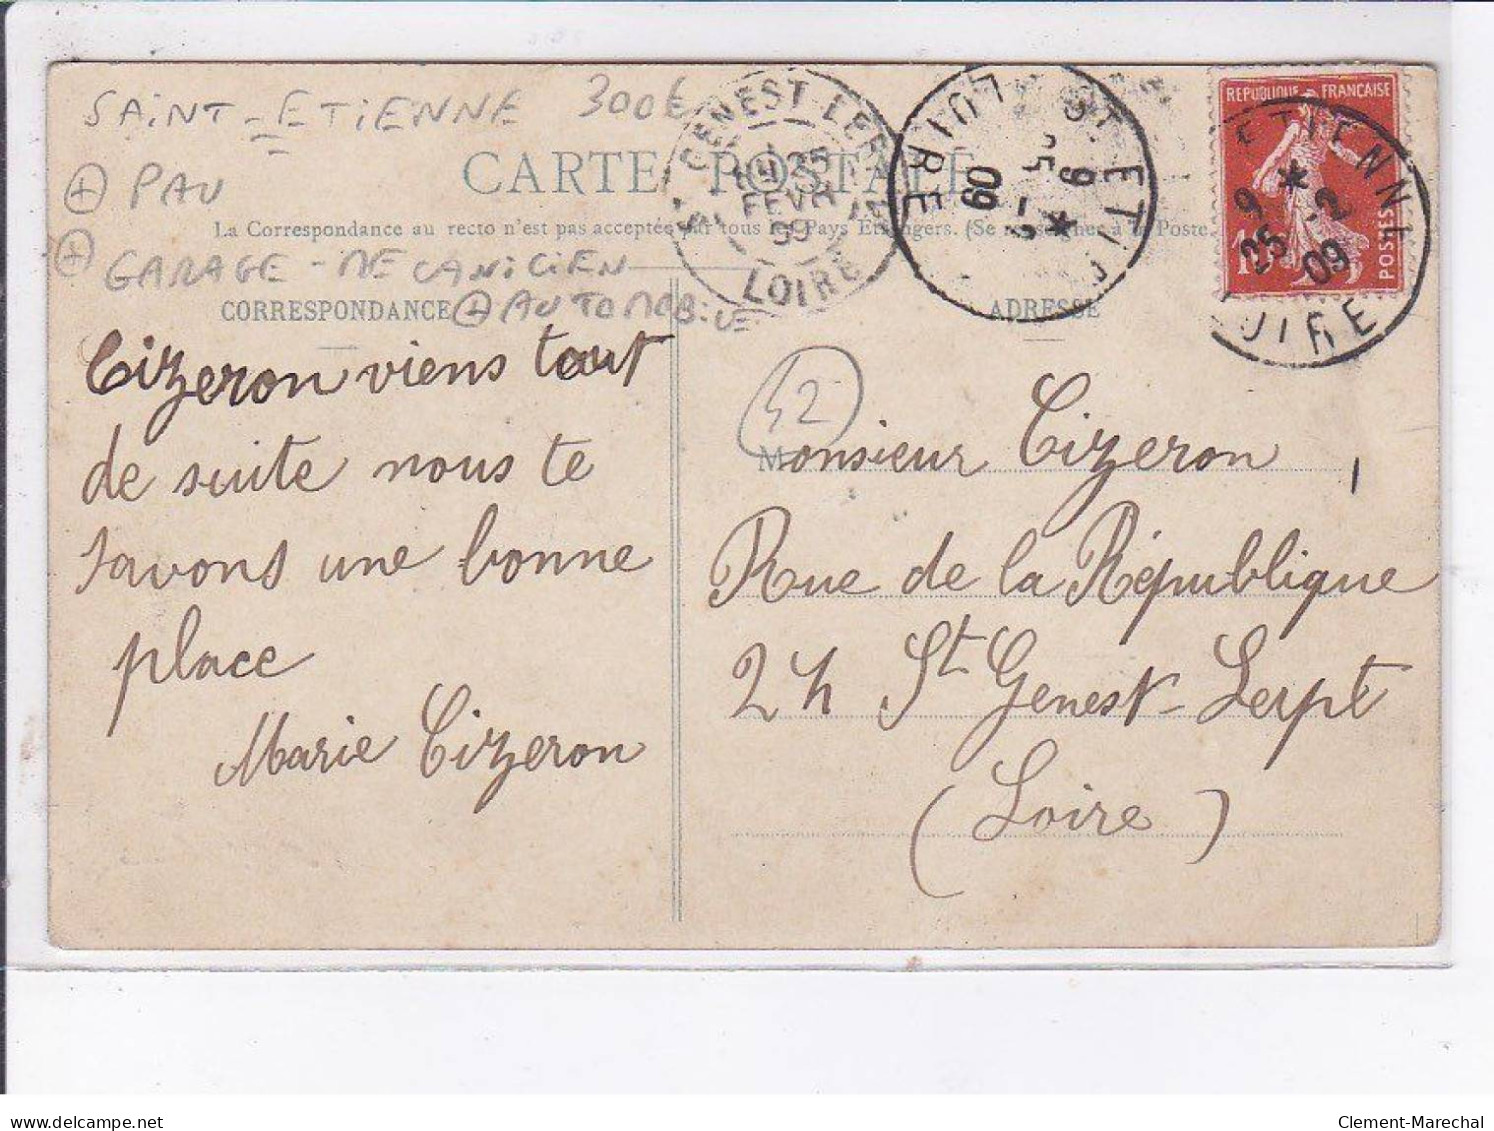 SAINT-ETIENNE 300€
+ PAU
+ GARAGE - MECANICIEN
+ AUTOMOBILE
CARTE POSTALE
La Correspondance au recto n'est pas acceptée par tous les Pays Etrangers. (Se renseigner à la Poste
CORRESPONDANCE
Cizeron viens tout
de suite nous te
savons une bonne
place
Marie Cizeron
ADRESSE
42
Monsieur Cizeron
Rue de la République
24 St Genest-Lerpt
Loire
(Loire)
ST GENEST-LERPT
25
FEVR
09
LOIRE
ST ETIENNE
9 *
25 -2
09
LOIRE
REPUBLIQUE FRANÇAISE
POSTES
10
ETIENNE
9 *
25 -2
09
LOIRE
delcampe.net
Clement-Marechal